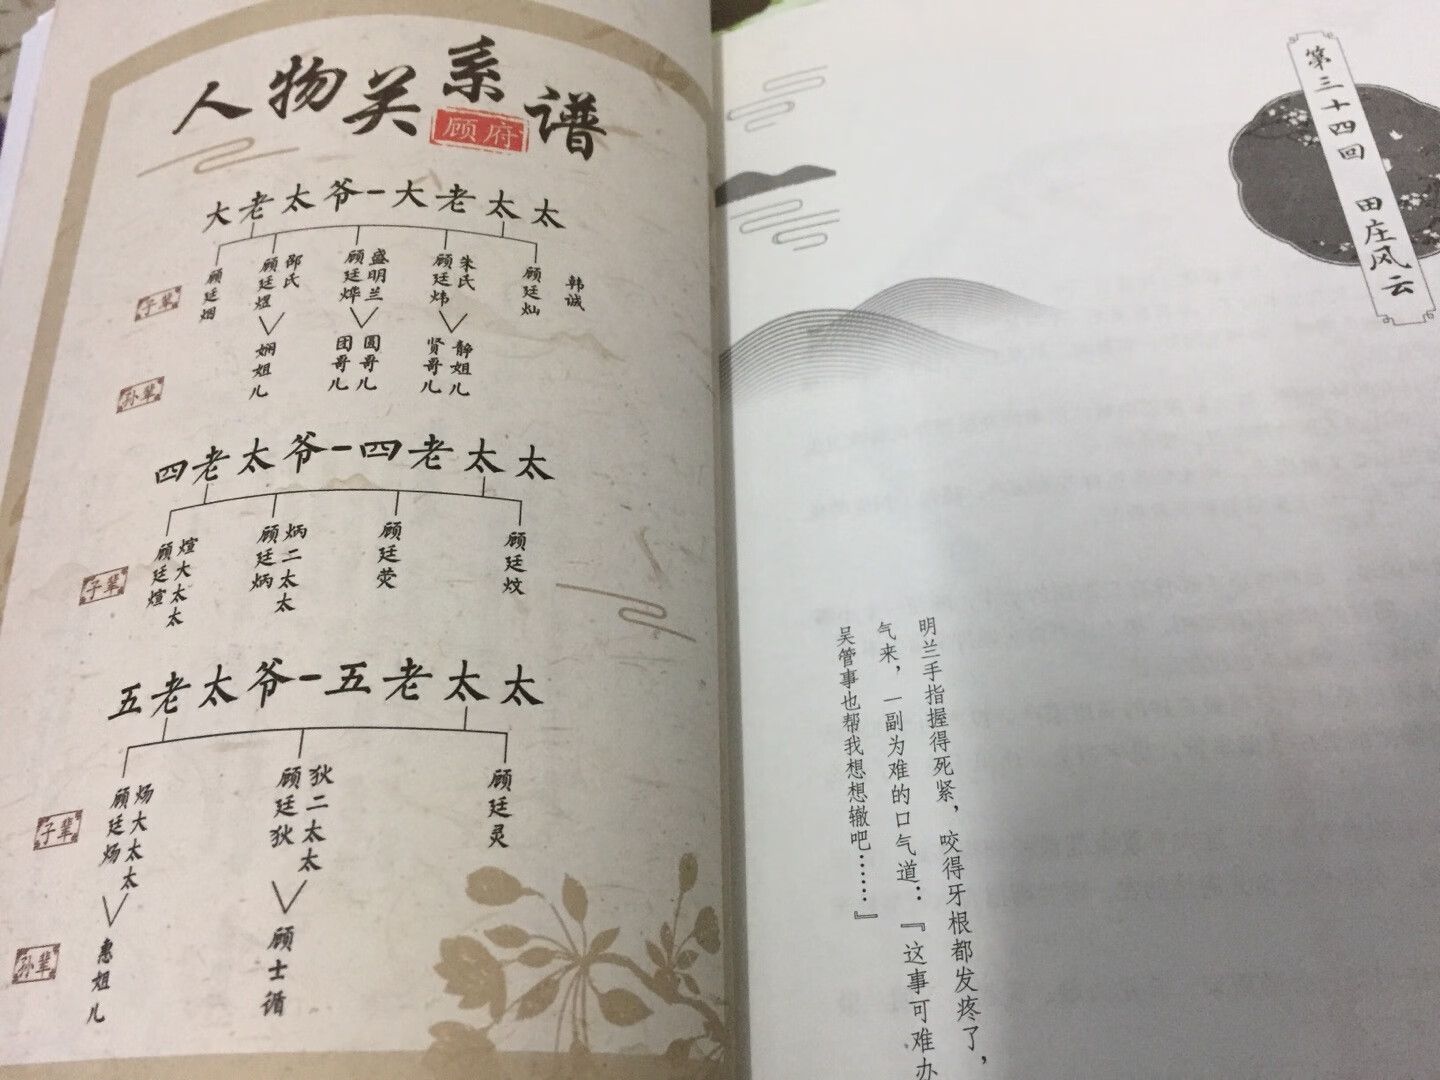 人物关系谱
顾府
大老太爷-大老太太
子辈
顾廷烟
顾廷煜
邵氏
顾廷烨
盛明兰
顾廷炜
朱氏
顾廷灿
韩诚
孙辈
娴姐儿
团哥儿
圆哥儿
贤哥儿
静姐儿
四老太爷-四老太太
子辈
顾廷煊
煊大太太
顾廷炳
炳二太太
顾廷荧
顾廷炆
五老太爷-五老太太
子辈
顾廷炀
炀大太太
顾廷狄
狄二太太
顾廷灵
孙辈
惠姐儿
顾士循
第三十四回 田庄风云
明兰手指握得死紧，咬得牙根都发疼了，
气来，一副为难的口气道：『这事可难办
吴管事也帮我想想辙吧……』